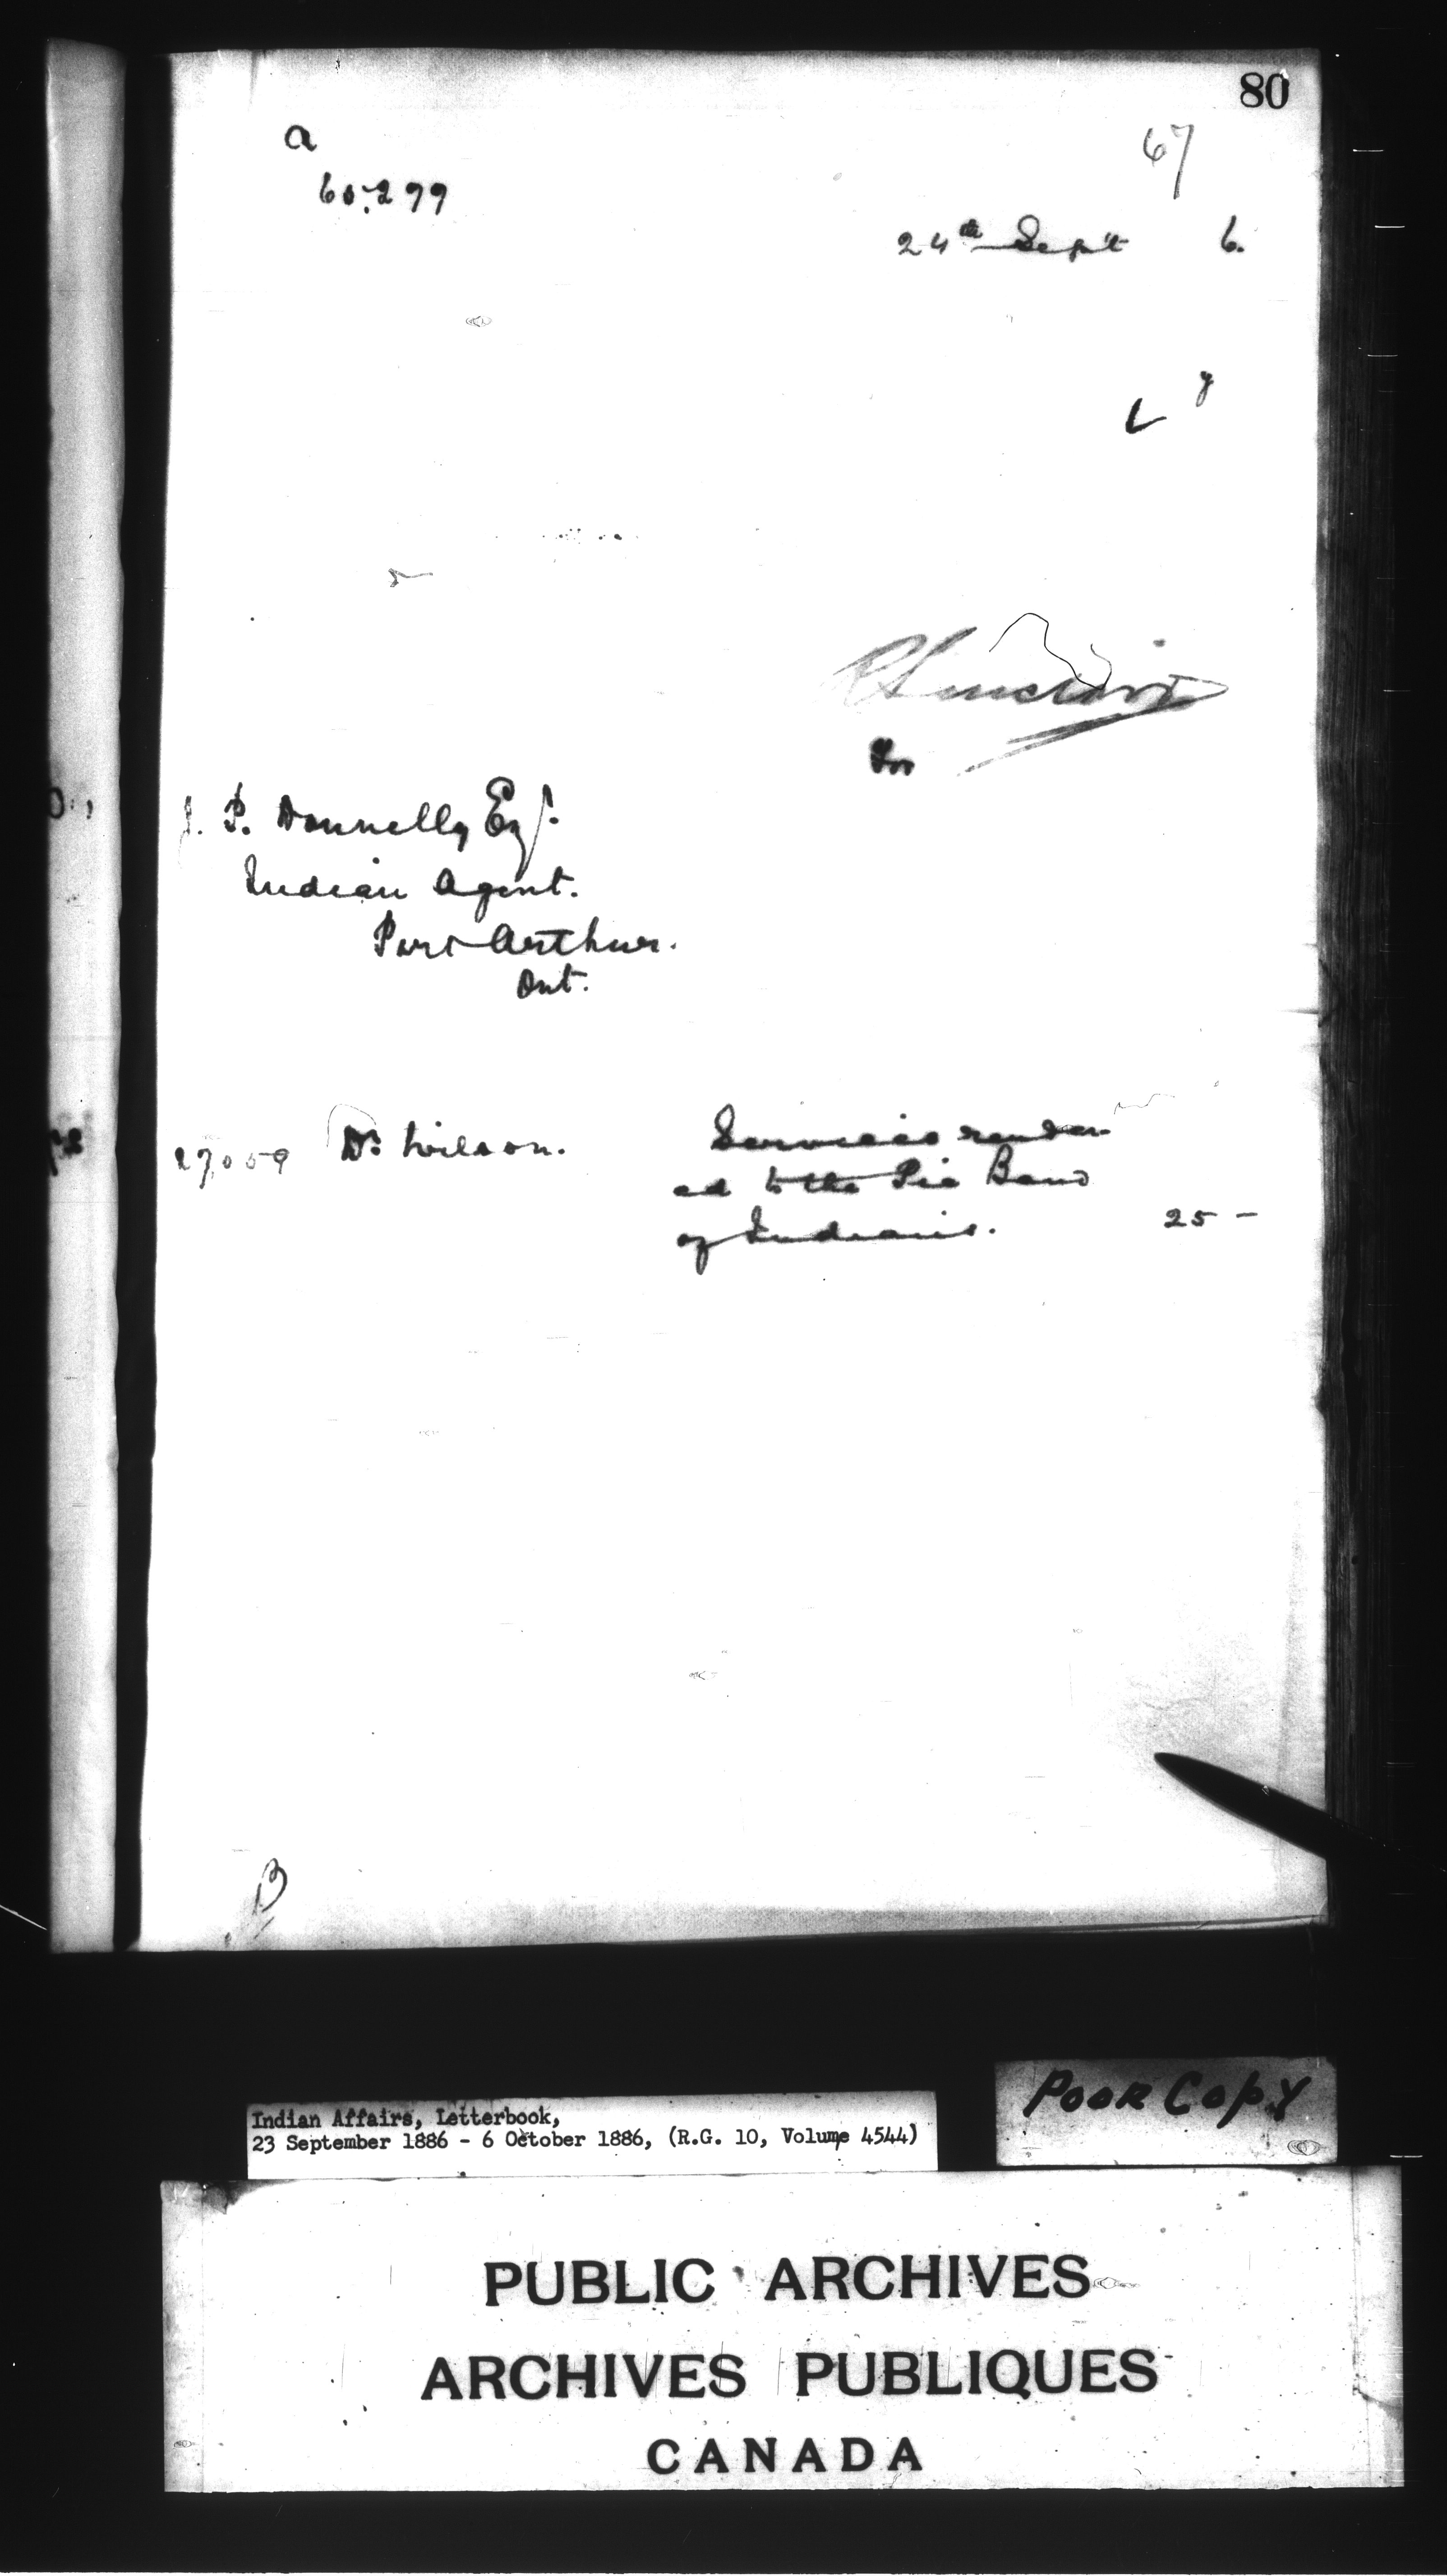 80
a
67
60,299
24th Sept 6.
y
R Sinclair
For
J. P. Donnelly Esq.
Indian Agent.
Port Arthur.
Ont.
27,059 Dr Wilson. Services render
ed to the Pic Band
of Indians. 25 —
B
Indian Affairs, Letterbook,
23 September 1886 - 6 October 1886, (R.G. 10, Volume 4544)
POOR COPY
PUBLIC ARCHIVES
ARCHIVES PUBLIQUES
CANADA